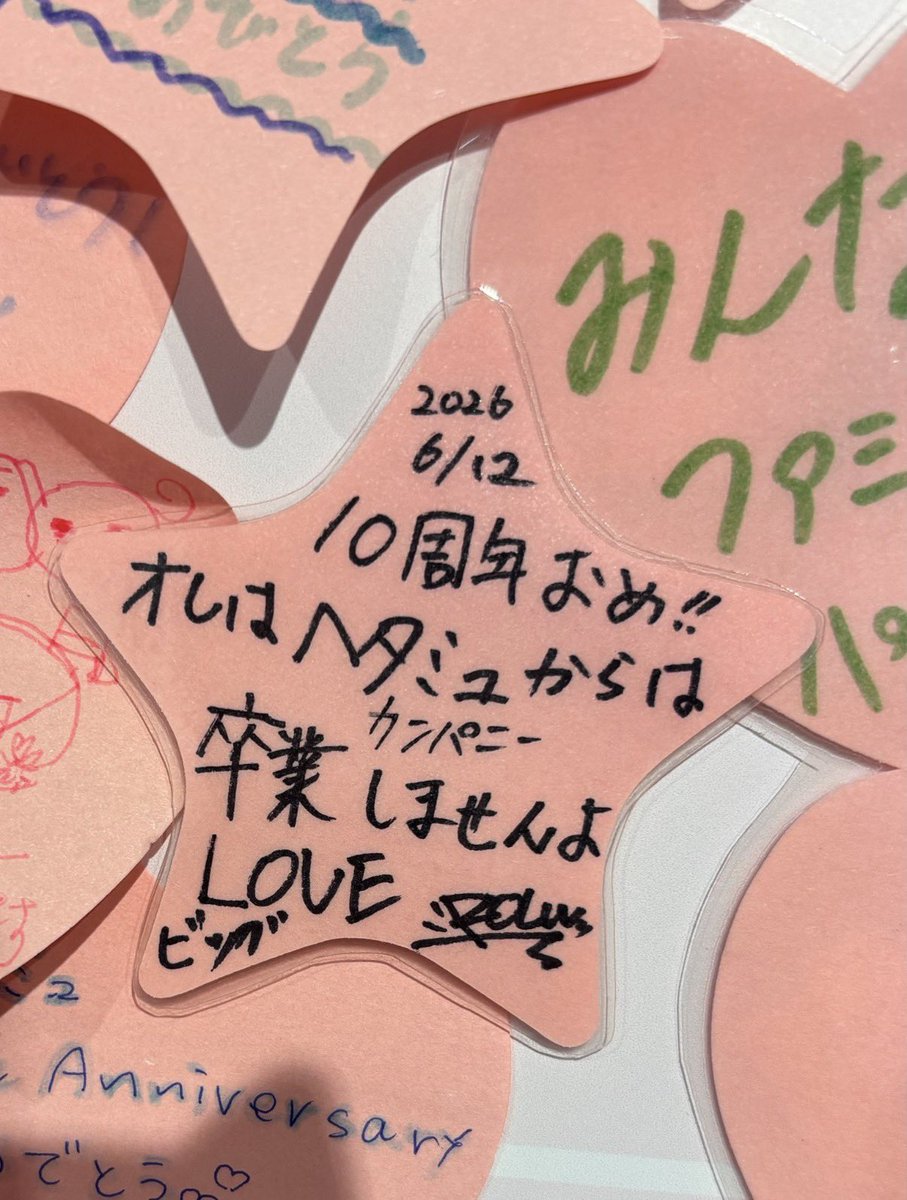 おめでとう
みんな
ヘタミ
パ
2026
6/12
10周年おめ!!
オレはヘタミュからは
カンパニー
卒業しませんよ
LOVE
ビッグ
Anniversary
でとう♡